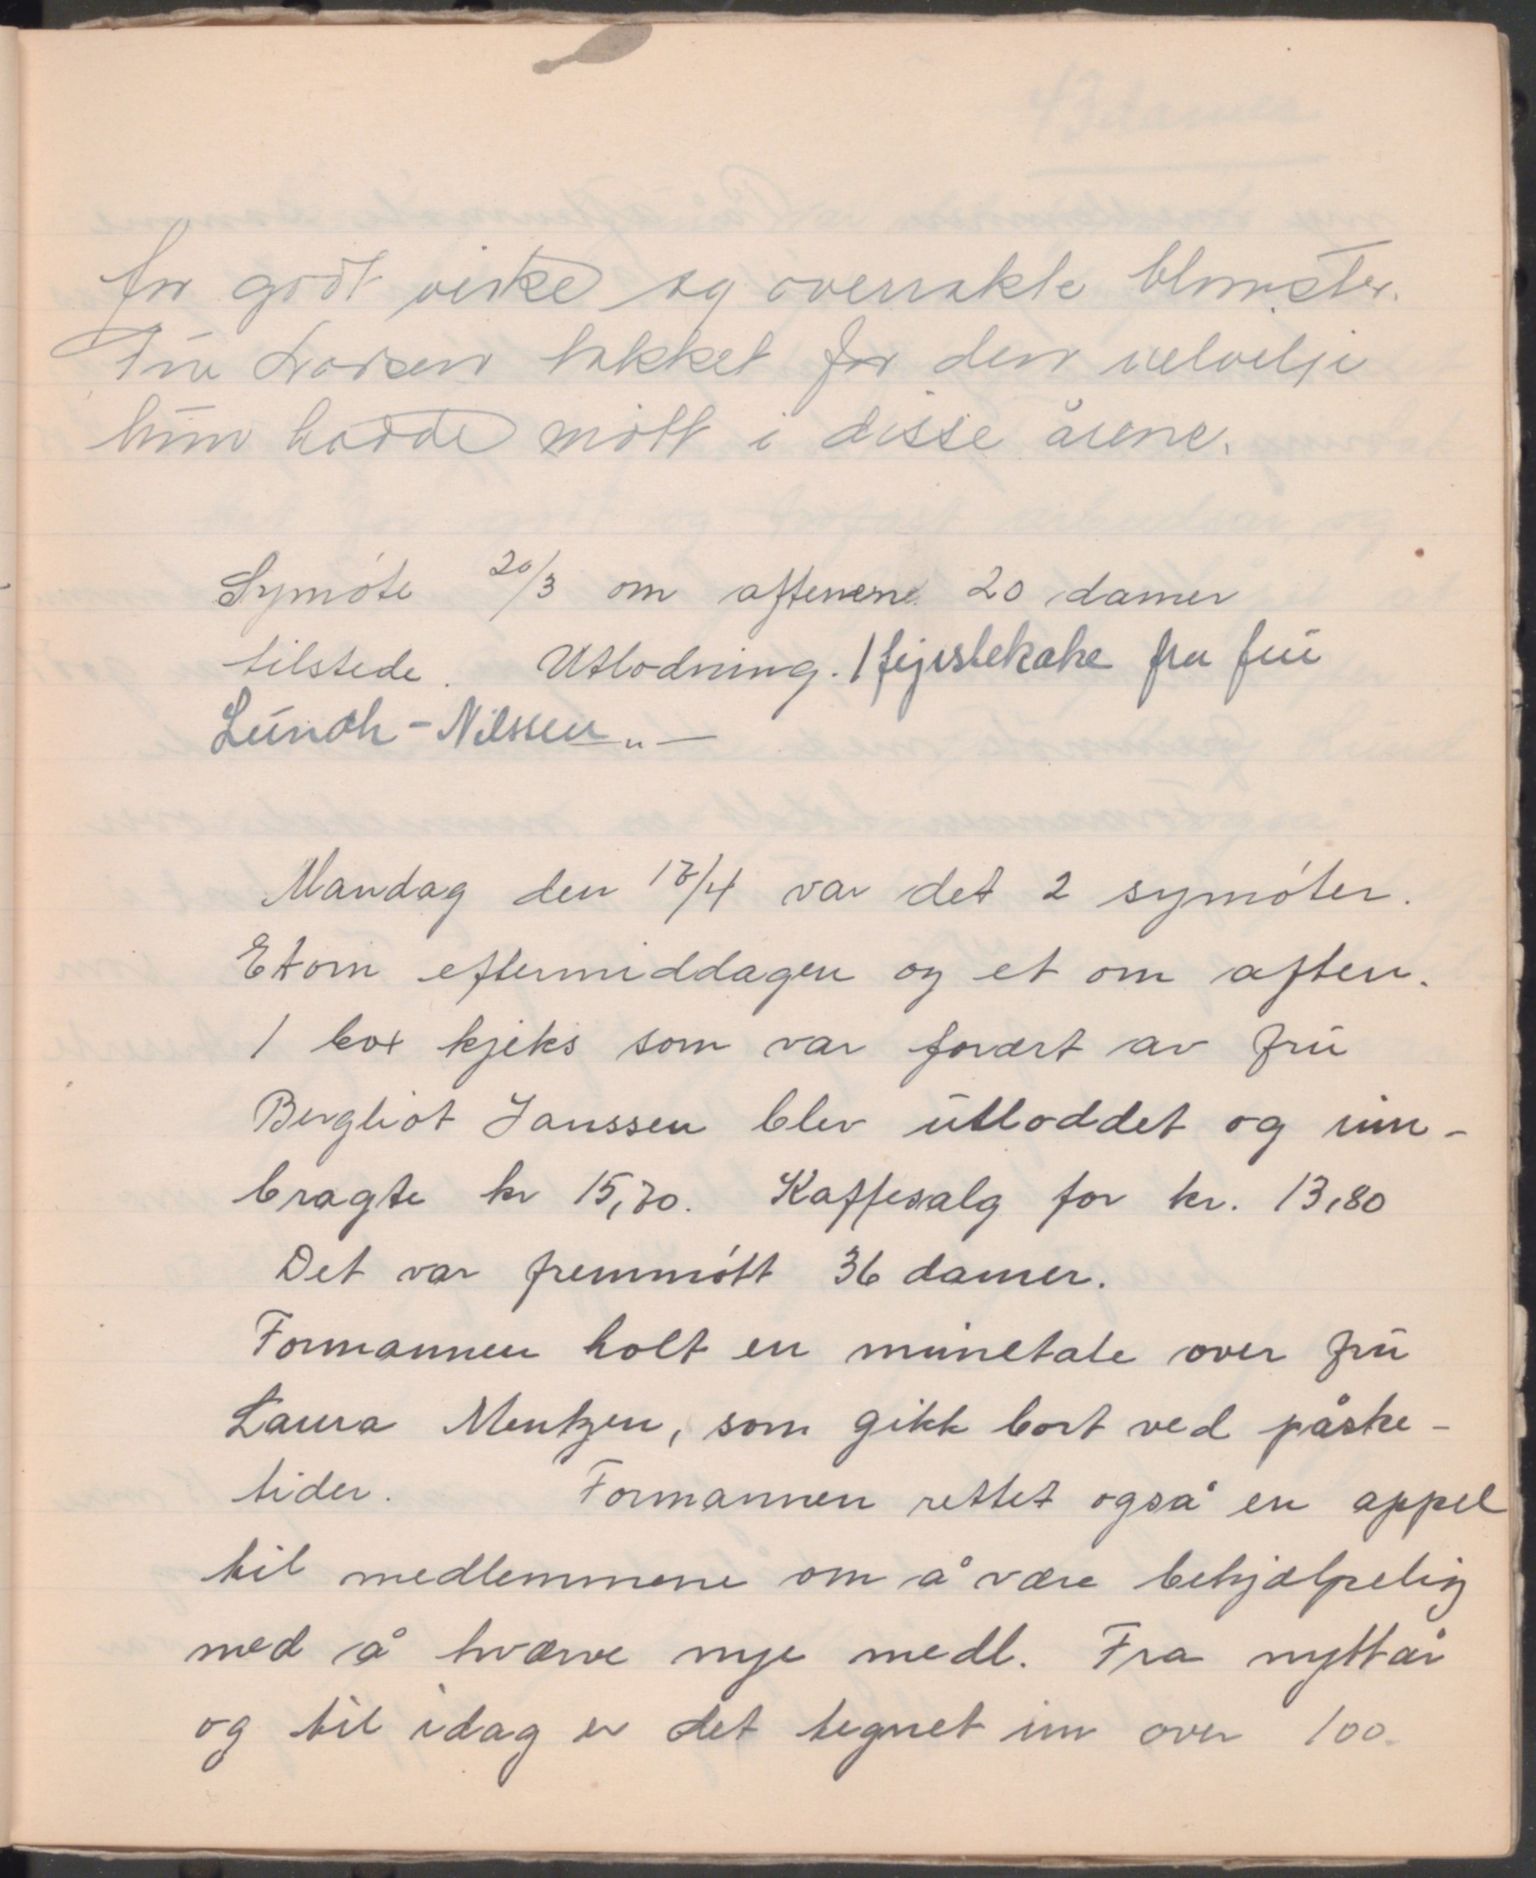 for godt virke og overrakte blomster.
Fru Larsen takket for den velvilje
hun hadde møtt i disse årene.
Symøte 20/3 om aftenen. 20 damer
tilstede. Utlodning. 1 fyrstekake fra fru
Lundh-Nilssen „—
Mandag den 17/4 var det 2 symøter.
Et om eftermiddagen og et om aften.
1 box kjeks som var forært av fru
Bergliot Janssen blev utloddet og inn-
bragte kr 15,70. Kaffesalg for kr. 13,80
Det var fremmøtt 36 damer.
Formannen holt en minnetale over fru
Laura Mentzen, som gikk bort ved påske-
tider. Formannen rettet også en appel
til medlemmene om å være behjælpelig
med å hværve nye medl. Fra nyttår
og til idag er det tegnet inn over 100.